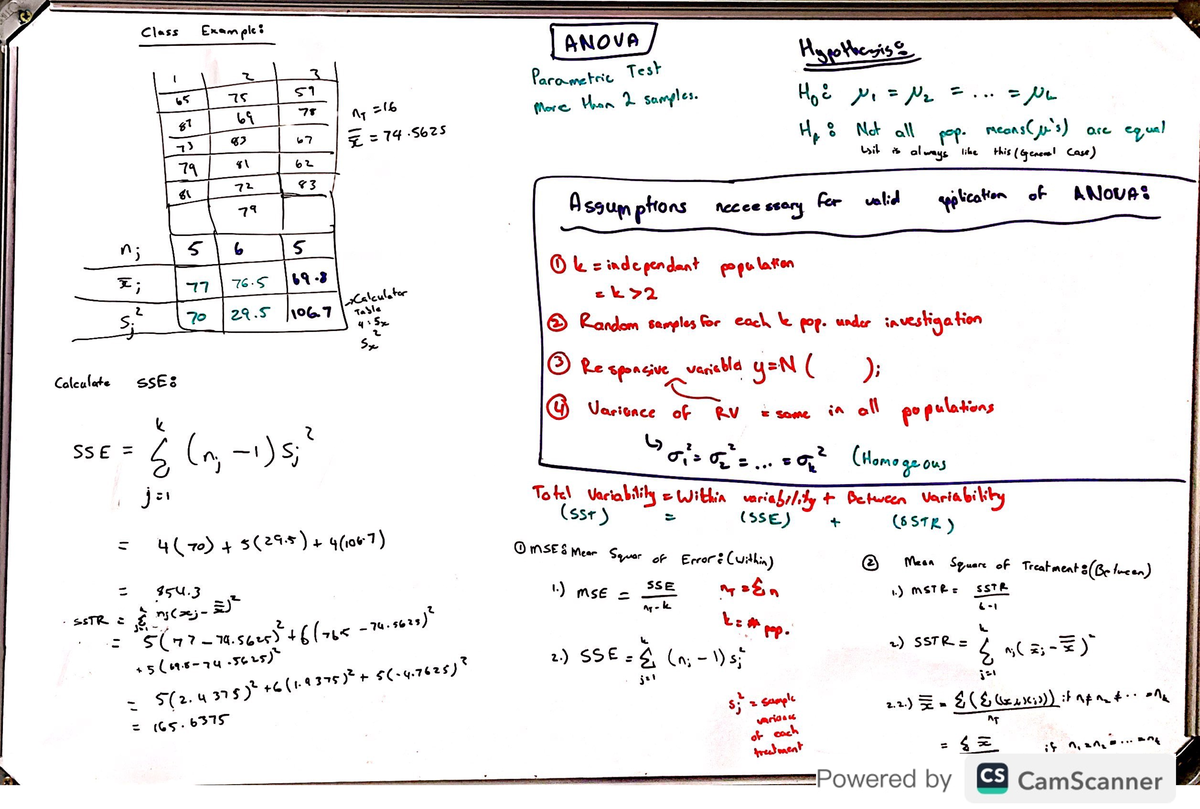 Class Example:
1 2 3
65 75 59
87 69 78
73 83 67
79 81 62
81 72 83
79
nⱼ 5 6 5
x̄ⱼ 77 76.5 69.8
sⱼ² 70 29.5 106.7
n_T = 16
x̿ = 74.5625
→Calculator
Table
4 : Sx
Sx²
Calculate SSE:
SSE = Σ_{j=1}^{k} (nⱼ - 1) sⱼ²
= 4(70) + 5(29.5) + 4(106.7)
= 854.3
SSTR = Σ_{j=1}^{k} nⱼ(x̄ⱼ - x̿)²
= 5(77 - 74.5625)² + 6(76.5 - 74.5625)²
+ 5(69.8 - 74.5625)²
= 5(2.4375)² + 6(1.9375)² + 5(-4.7625)²
= 165.6375
ANOVA
Parametric Test
More than 2 samples.
Hypothesis:
H₀: μ₁ = μ₂ = ... = μₖ
Not all pop. means (μ's) are equal
is always like this (General Case)
Assumptions neccessary for valid application of ANOVA:
① k = independant population
= k > 2
② Random samples for each k pop. under investigation
③ Responsive variable y=N ( );
④ Variance of RV = same in all populations
↳ σ₁² = σ₂² = ... = σₖ² (Homogeous
Total Variability = Within variability + Between Variability
(SST) = (SSE) + (SSTR)
① MSE: Mean Squar of Error: (Within)
1.) MSE = SSE / n_T - k
n_T = Σn
k = # pop.
2.) SSE = Σ_{j=1}^{k} (nⱼ - 1) sⱼ²
sⱼ² = sample
variance
of each
treatment
② Mean Square of Treatment: (Between)
1.) MSTR = SSTR / k-1
2.) SSTR = Σ_{j=1}^{k} nⱼ(x̄ⱼ - x̿)²
2.2.) x̿ = Σ(Σ( / n_T if n₁ ≠ n₂ ≠ ... ≠ nₖ
= Σx̄ if n₁ = n₂ = ... = nₖ
Powered by CS CamScanner